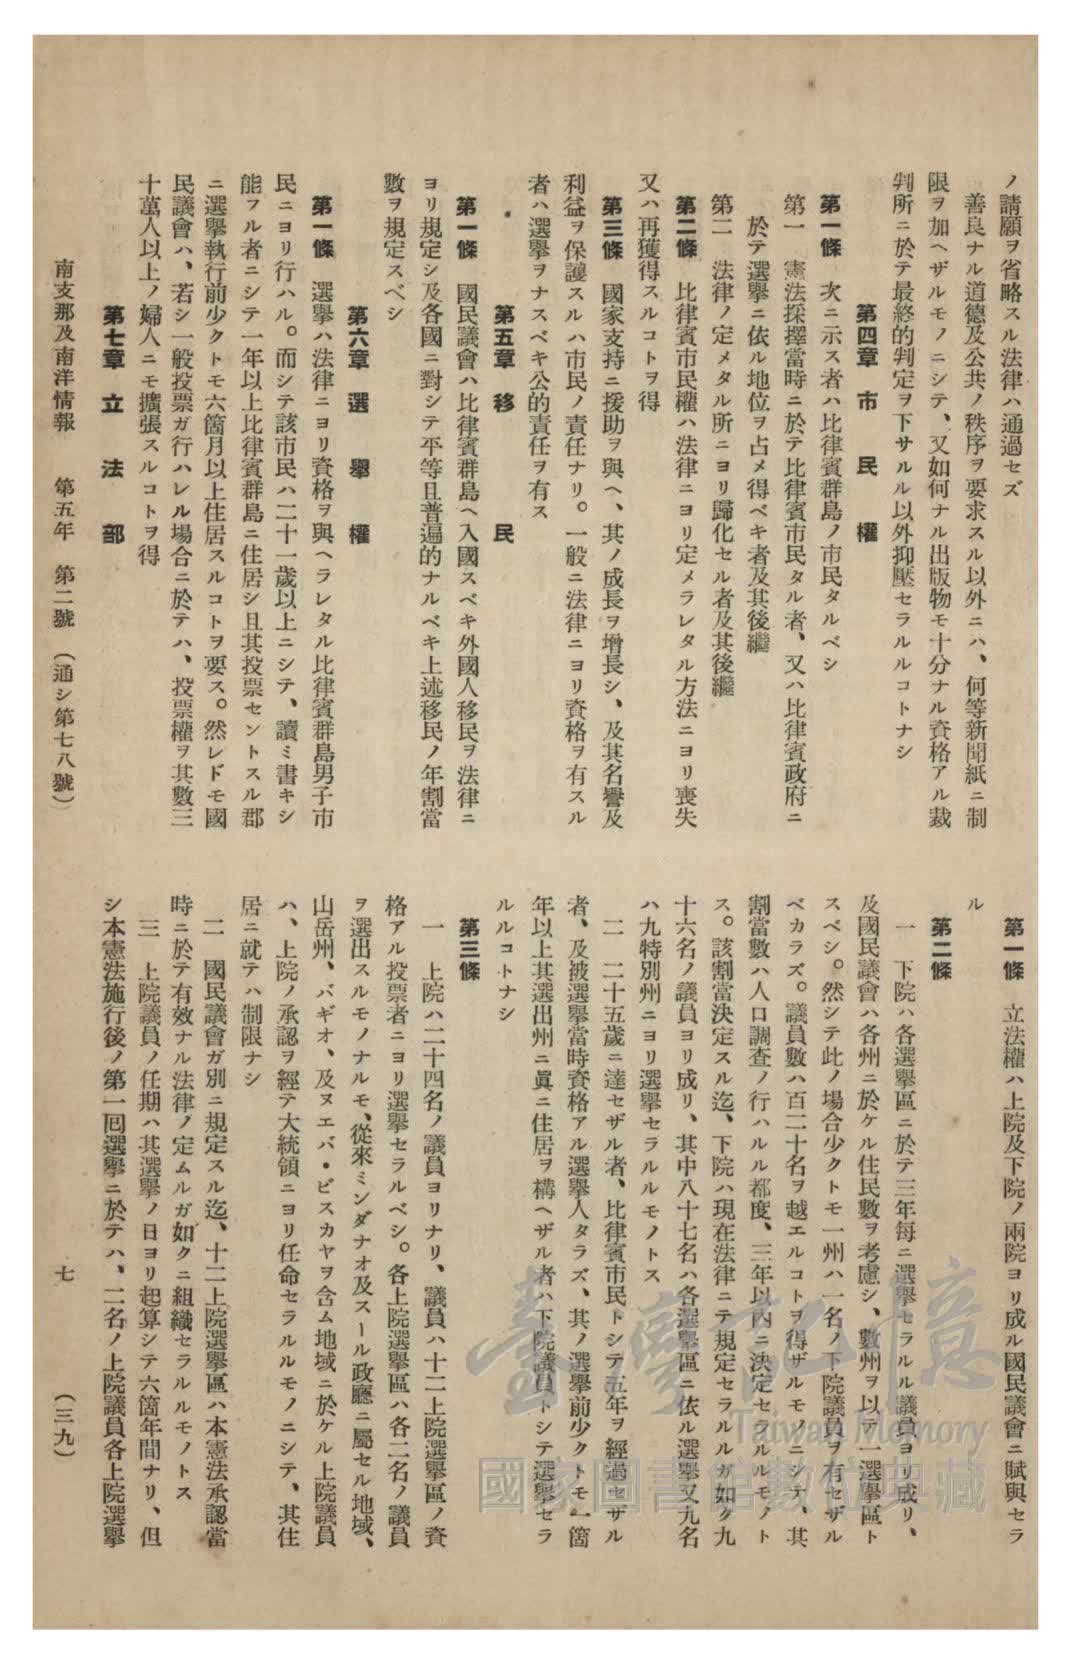 ノ請願ヲ省略スル法律ハ通過セズ
善良ナル道德及公共ノ秩序ヲ要求スル以外ニハ、何等新聞紙ニ制
限ヲ加ヘザルモノニシテ、又如何ナル出版物モ十分ナル資格アル裁
判所ニ於テ最終的判定ヲ下サルル以外抑壓セラルルコトナシ
第四章 市民權
第一條 次ニ示ス者ハ比律賓群島ノ市民タルベシ
第一 憲法採擇當時ニ於テ比律賓市民タル者、又ハ比律賓政府ニ
於テ選擧ニ依ル地位ヲ占メ得ベキ者及其後繼
第二 法律ノ定メタル所ニヨリ歸化セル者及其後繼
第二條 比律賓市民權ハ法律ニヨリ定メラレタル方法ニヨリ喪失
又ハ再獲得スルコトヲ得
第三條 國家支持ニ援助ヲ與ヘ、其ノ成長ヲ增長シ、及其名譽及
利益ヲ保護スルハ市民ノ責任ナリ。一般ニ法律ニヨリ資格ヲ有スル
者ハ選擧ヲナスベキ公的責任ヲ有ス
第五章 移民
第一條 國民議會ハ比律賓群島ヘ入國スベキ外國人移民ヲ法律ニ
ヨリ規定シ及各國ニ對シテ平等且普遍的ナルベキ上述移民ノ年割當
數ヲ規定スベシ
第六章 選擧權
第一條 選擧ハ法律ニヨリ資格ヲ與ヘラレタル比律賓群島男子市
民ニヨリ行ハル。而シテ該市民ハ二十一歲以上ニシテ、讀ミ書キシ
能フル者ニシテ一年以上比律賓群島ニ住居シ且其投票セントスル郡
ニ選擧執行前少クトモ六箇月以上住居スルコトヲ要ス。然レドモ國
民議會ハ、若シ一般投票ガ行ハレル場合ニ於テハ、投票權ヲ其數三
十萬人以上ノ婦人ニモ擴張スルコトヲ得
第七章 立法部
第一條 立法權ハ上院及下院ノ兩院ヨリ成ル國民議會ニ賦與セラ
ル
第二條
一 下院ハ各選擧區ニ於テ三年每ニ選擧セラルル議員ヨリ成リ、
及國民議會ハ各州ニ於ケル住民數ヲ考慮シ、數州ヲ以テ一選擧區ト
スベシ。然シテ此ノ場合少クトモ一州ハ一名ノ下院議員ヲ有セザル
ベカラズ。議員數ハ百二十名ヲ越エルコトヲ得ザルモノニシテ、其
割當數ハ人口調査ノ行ハルル都度、三年以內ニ決定セラルルモノト
ス。該割當決定スル迄、下院ハ現在法律ニテ規定セラルルガ如ク九
十六名ノ議員ヨリ成リ、其中八十七名ハ各選擧區ニ依ル選擧又九名
ハ九特別州ニヨリ選擧セラルルモノトス
二 二十五歲ニ達セザル者、比律賓市民トシテ五年ヲ經過セザル
者、及被選擧當時資格アル選擧人タラズ、其ノ選擧前少クトモ一箇
年以上其選出州ニ眞ニ住居ヲ構ヘザル者ハ下院議員トシテ選擧セラ
ルルコトナシ
第三條
一 上院ハ二十四名ノ議員ヨリナリ、議員ハ十二上院選擧區ノ資
格アル投票者ニヨリ選擧セラルベシ。各上院選擧區ハ各二名ノ議員
ヲ選出スルモノナルモ、從來ミンダナオ及スール政廳ニ屬セル地域、
山岳州、バギオ、及ヌエバ・ビスカヤヲ含ム地域ニ於ケル上院議員
ハ、上院ノ承認ヲ經テ大統領ニヨリ任命セラルルモノニシテ、其住
居ニ就テハ制限ナシ
二 國民議會ガ別ニ規定スル迄、十二上院選擧區ハ本憲法承認當
時ニ於テ有效ナル法律ノ定ムルガ如クニ組織セラルルモノトス
三 上院議員ノ任期ハ其選擧ノ日ヨリ起算シテ六箇年間ナリ、但
シ本憲法施行後ノ第一回選擧ニ於テハ、二名ノ上院議員各上院選擧
南支那及南洋情報 第五年 第二號 （通シ第七八號） 七 （三九）
臺灣記憶
Taiwan Memory
國家圖書館數位典藏